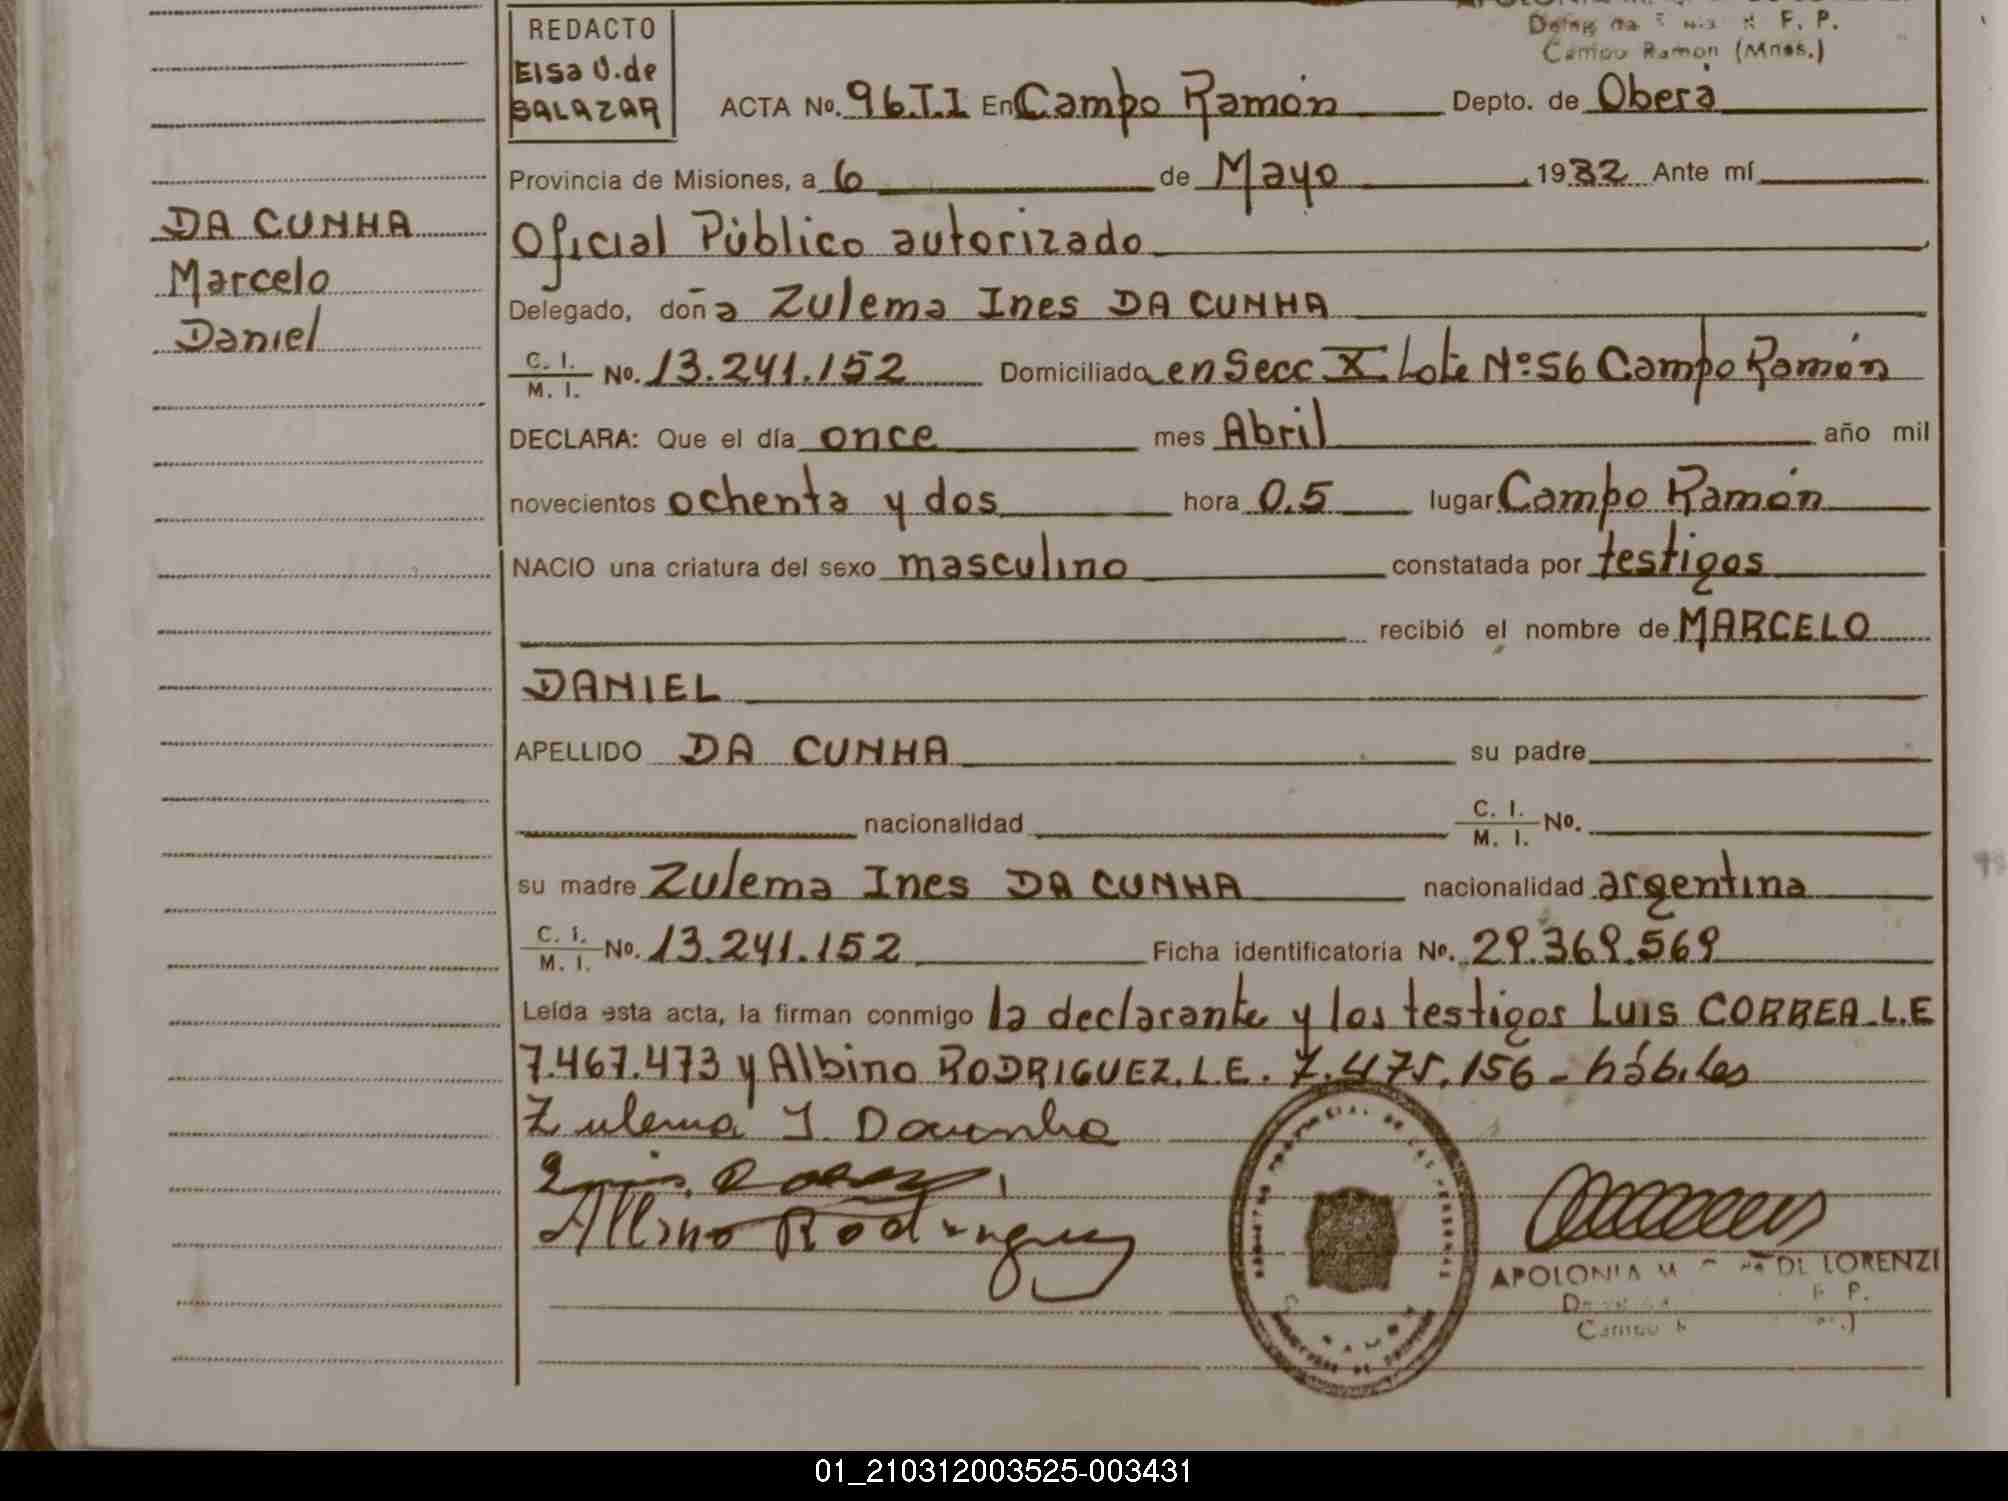 REDACTO
Elsa V. de
SALAZAR
F. P.
Campo Ramon (Mnes.)
ACTA No. 96.T.I En Campo Ramón Depto. de Oberá
Provincia de Misiones, a 6 de Mayo 1982 Ante mí
Oficial Público autorizado
Delegado, doña Zulema Ines DA CUNHA
C. I. / M. I. No. 13.241.152 Domiciliada en Secc X Lote Nº 56 Campo Ramón
DECLARA: Que el día once mes Abril año mil
novecientos ochenta y dos hora 0.5 lugar Campo Ramón
NACIO una criatura del sexo masculino constatada por testigos
recibió el nombre de MARCELO
DANIEL
APELLIDO DA CUNHA su padre
nacionalidad C. I. / M. I. No.
su madre Zulema Ines DA CUNHA nacionalidad argentina
C. I. / M. I. No. 13.241.152 Ficha identificatoria No. 29.369.569
Leída esta acta, la firman conmigo la declarante y los testigos Luis CORREA L.E
7.467.473 y Albino RODRIGUEZ. L.E. 7.475.156 - hábiles
Zulema I. Dacunha
Luis
Albino Rodriguez
APOLONIA M DE LORENZI
F. P.
DA CUNHA
Marcelo
Daniel
01_210312003525-003431